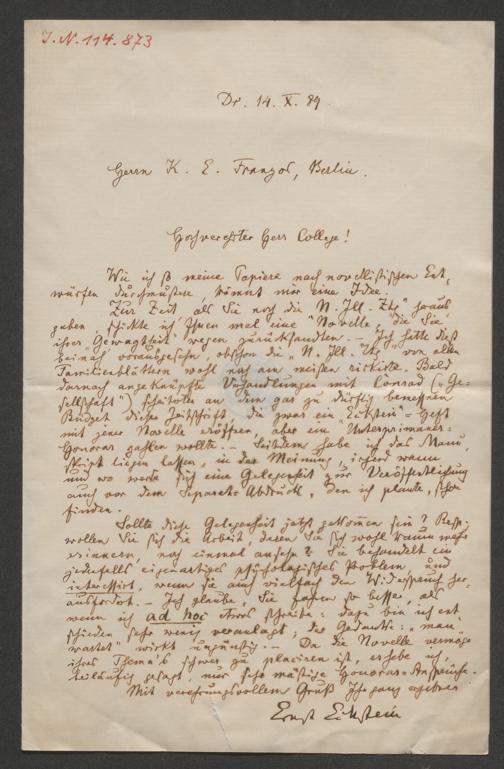 I. N. 114.873
Dr. 14. X. 89.
Herrn K. E. Franzos, Berlin.
Hochverehrter Herr College!
Wie ich so meine Papiere nach novellistischen Ent-
würfen durchmustere, kommt mir eine Idee.
Zur Zeit als Sie noch die „N. Ill. Ztg" heraus
gaben, schickte ich Ihnen mal eine Novelle, die Sie
ihrer Gewagtheit wegen zurücksandten. – Ich hatte dieß
beinah vorausgesehn, obschon die „N. Ill. Ztg" von allen
Familienblättern wohl noch am meisten riskirte. Bald
darnach angeknüpfte Verhandlungen mit Conrad („Ge-
sellschaft") scheiterten an dem gar zu dürftig bemeßnen
Budget dieser Zeitschrift, die zwar ein „Eckstein"-Heft
mit jener Novelle eröffnen, aber ein Unterprimaner-
Honorar zahlen wollte. – Seitdem habe ich das Manu-
skript liegen lassen, in der Meinung, irgend wann
und wo werde sich eine Gelegenheit zur Veröffentlichung
auch vor dem Separat-Abdruck, den ich plante, schon
finden.
Sollte diese Gelegenheit jetzt gekommen sein?
wollen Sie sich die Arbeit, deren Sie sich wohl kaum mehr
erinnern, noch einmal ansehn? Sie behandelt ein
jedenfalls eigenartiges psychologisches Problem, und
interessirt, wenn sie auch vielfach den Widerspruch her-
ausfordert. – Ich glaube, Sie fahren so besser, als
wenn ich ad hoc etwas schreibe: dazu bin ich ent-
schieden sehr wenig veranlagt; der Gedanke: „man
wartet" wirkt ungünstig. – Da die Novelle vermöge
ihres Thema's schwer zu placiren ist, erhebe ich,
beiläufig gesagt, nur sehr mäßige Honorar-Ansprüche.
Mit verehrungsvollem Gruß Ihr ganz ergebner
Ernst Eckstein